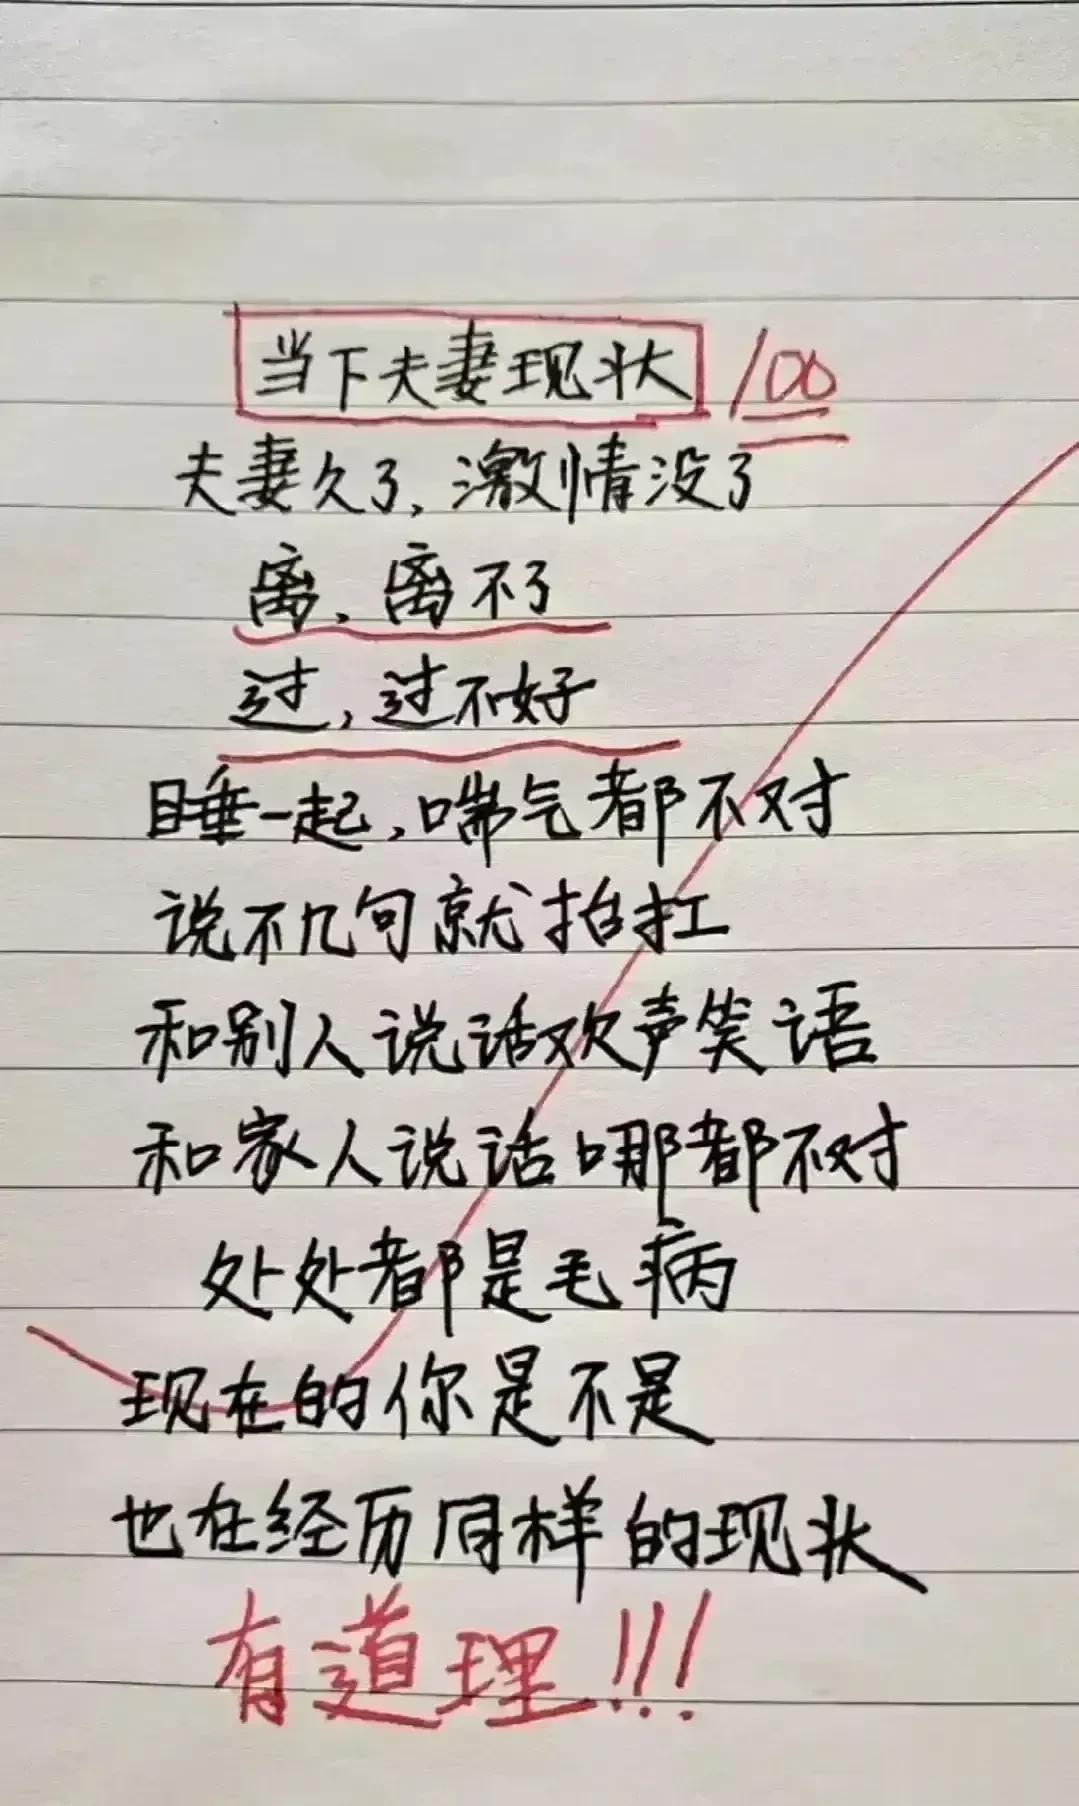 当下夫妻现状 100
夫妻久了,激情没了
离,离不了
过,过不好
睡一起,喘气都不对
说不几句就抬扛
和别人说话欢声笑语
和家人说话哪都不对
处处都是毛病
现在的你是不是
也在经历同样的现状
有道理!!!